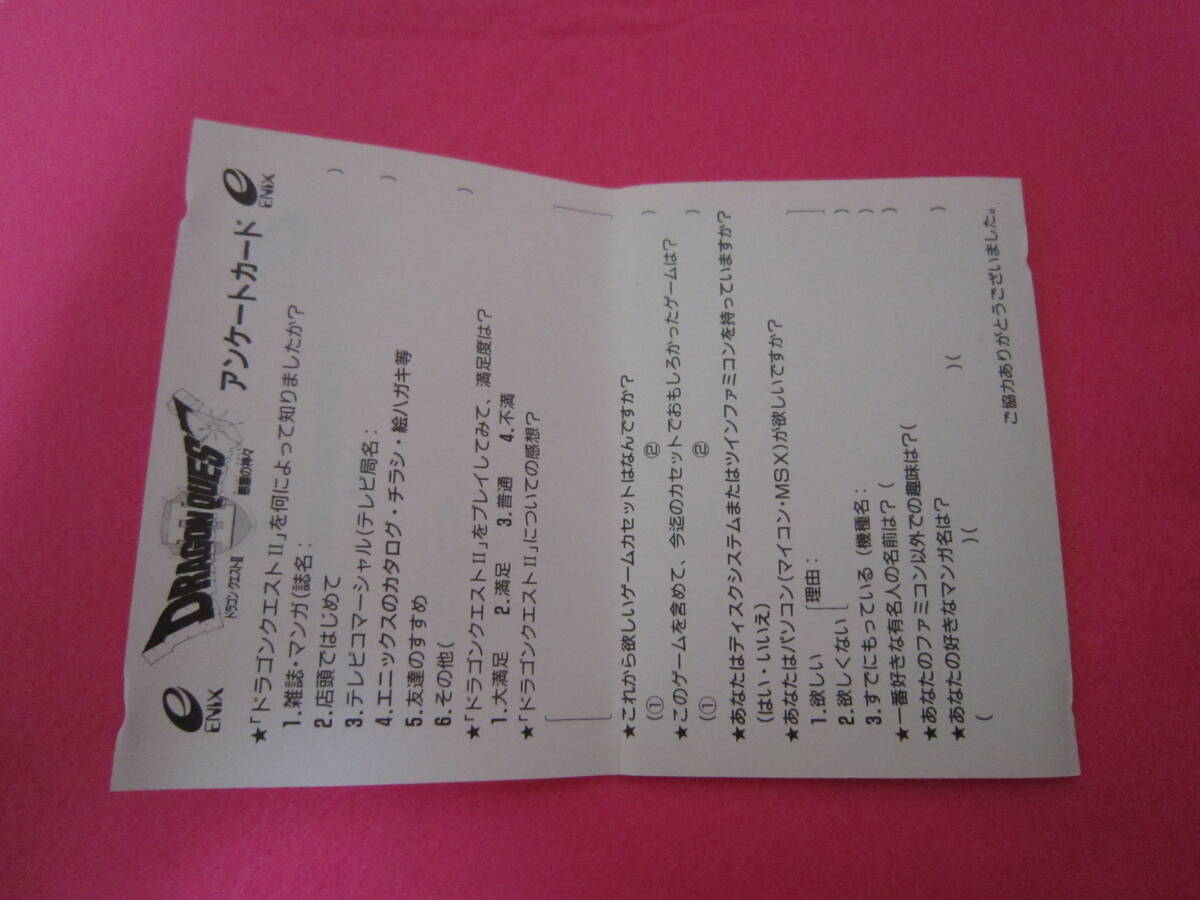 ENIX
DRAGON QUEST
ドラゴンクエストII
悪霊の神々
アンケートカード
ENIX
★「ドラゴンクエストII」を何によって知りましたか?
1.雑誌・マンガ(誌名: )
2.店頭ではじめて
3.テレビコマーシャル(テレビ局名: )
4.エニックスのカタログ・チラシ・絵ハガキ等
5.友達のすすめ
6.その他( )
★「ドラゴンクエストII」をプレイしてみて、満足度は?
1.大満足 2.満足 3.普通 4.不満
★「ドラゴンクエストII」についての感想?
★これから欲しいゲームカセットはなんですか?
(① ② )
★このゲームを含めて、今迄のカセットでおもしろかったゲームは?
(① ② )
★あなたはディスクシステムまたはツインファミコンを持っていますか?
(はい・いいえ)
★あなたはパソコン(マイコン・MSX)が欲しいですか?
1.欲しい
2.欲しくない
理由:
3.すでにもっている(機種名: )
★一番好きな有名人の名前は?( )
★あなたのファミコン以外での趣味は?( )
★あなたの好きなマンガ名は?
( )( )( )
ご協力ありがとうございました。